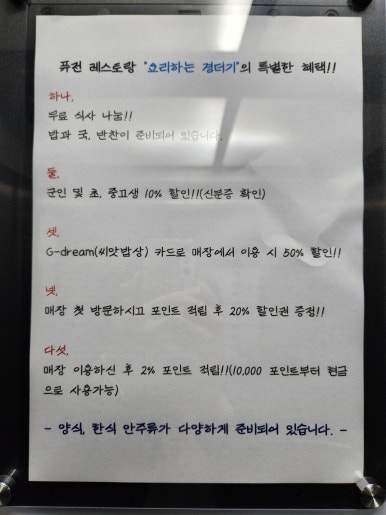 퓨전 레스토랑 "요리하는 경더기"의 특별한 혜택!!
하나,
무료 식사 나눔!!
밥과 국, 반찬이 준비되어 있습니다.
둘,
군인 및 초, 중고생 10% 할인!!(신분증 확인)
셋,
G-dream(씨앗밥상) 카드로 매장에서 이용 시 50% 할인!!
넷,
매장 첫 방문하시고 포인트 적립 후 20% 할인권 증정!!
다섯,
매장 이용하신 후 2% 포인트 적립!!(10,000 포인트부터 현금
으로 사용가능)
- 양식, 한식 안주류가 다양하게 준비되어 있습니다. -